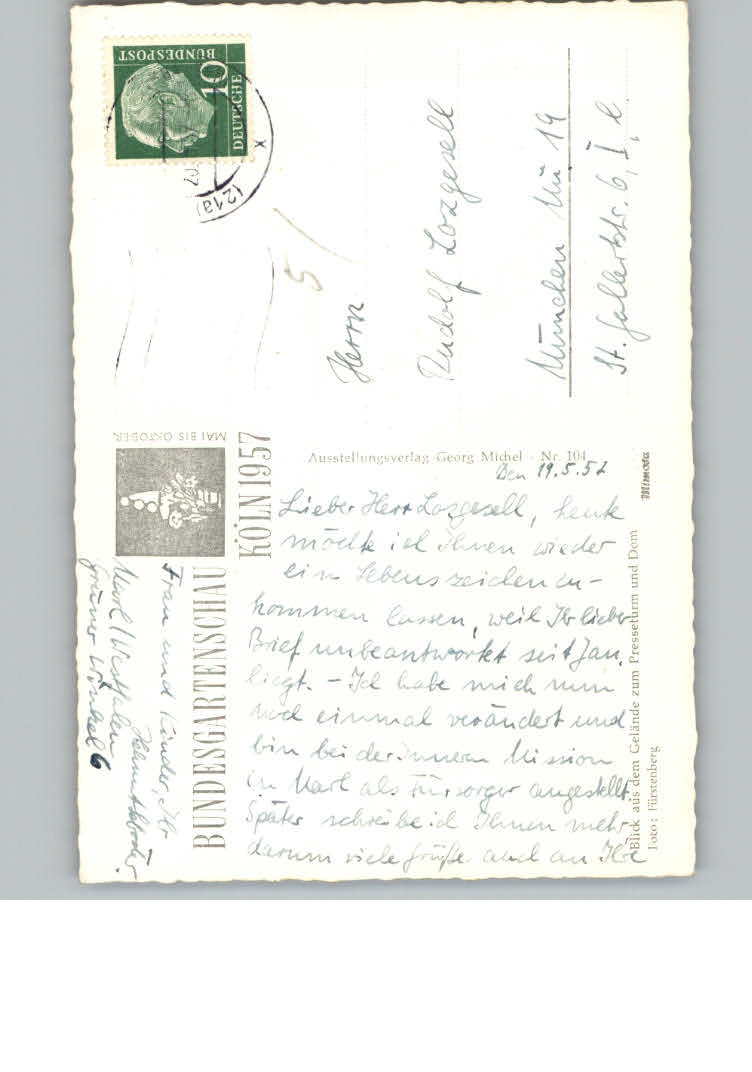 DEUTSCHE
BUNDESPOST
10
(21a)
07
x
5
Herrn
Rudolf Lozgesell
München Mü 19
St. Gallertstr. 6, I, l.
MAI BIS OKTOBER
KÖLN 1957
BUNDESGARTENSCHAU
Ausstellungsverlag Georg Michel - Nr. 104
Mimosa
Den 19.5.57
Lieber Herr Lozgesell, heute
möchte ich Ihnen wieder
ein Lebenszeichen zu-
kommen lassen, weil Ihr lieber
Brief unbeantwortet seit Jan.
liegt. - Ich habe mich nun
noch einmal verändert und
bin bei der Inneren Mission
in Marl als Fürsorger angestellt.
Später schreibe ich Ihnen mehr,
darum viele Grüße auch an Ihre
Frau und Kinder, Ihr
Helmut
Marl/Westfalen
Grüner Winkel 6
Blick aus dem Gelände zum Presseturm und Dom
Foto: Fürstenberg